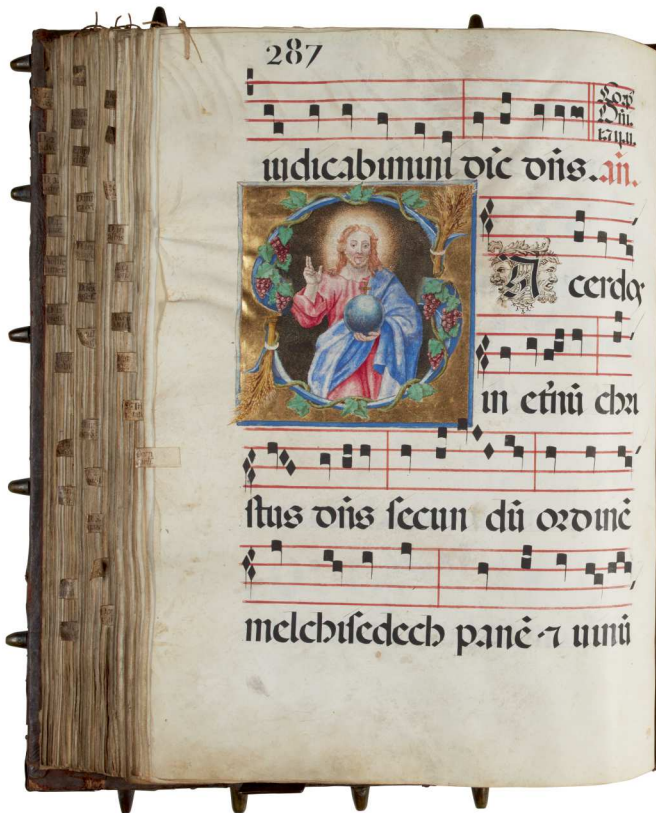 287
iudicabimini dic̄ dn̄s. an̄.
S Acerdos
in et̄nū chri
stus dn̄s secun dū ordinē
melchisedech panē ⁊ uinū